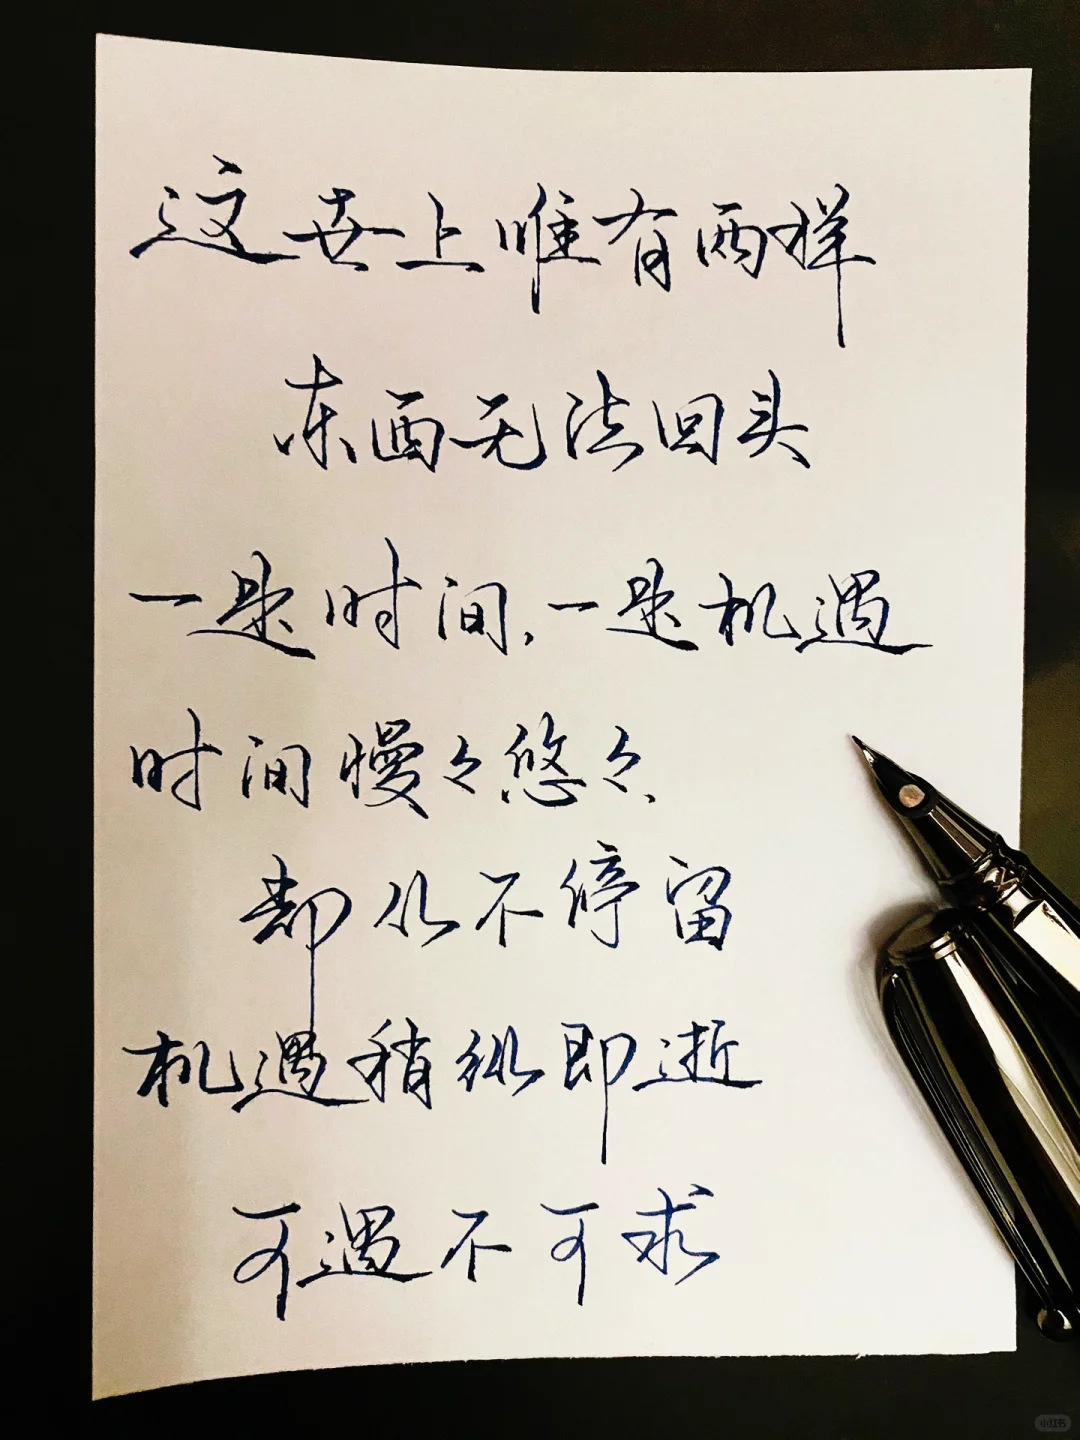 这世上唯有两样
东西无法回头
一是时间,一是机遇
时间慢々悠々
却从不停留
机遇稍纵即逝
可遇不可求
小红书